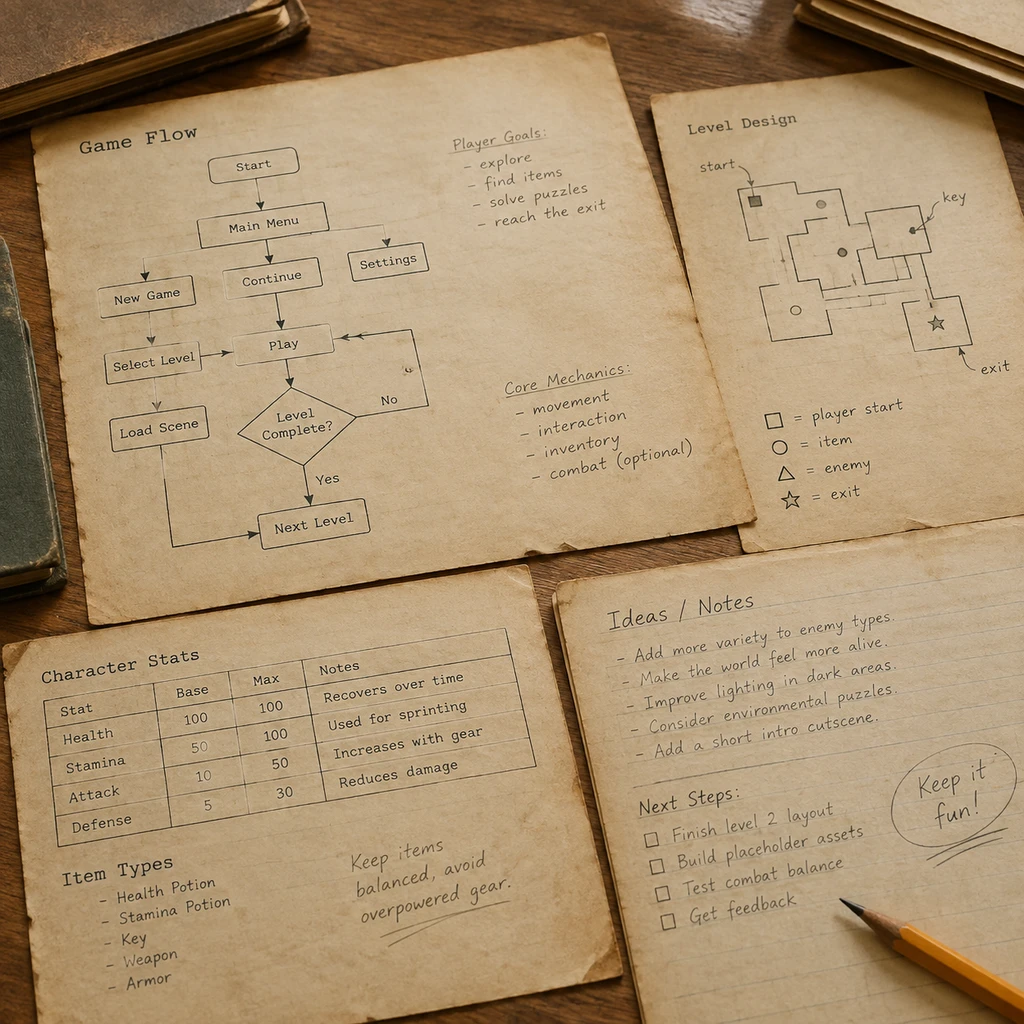 Game Flow
Start
Main Menu
New Game
Continue
Settings
Select Level
Play
Load Scene
Level
Complete?
No
Yes
Next Level
Player Goals:
- explore
- find items
- solve puzzles
- reach the exit
Core Mechanics:
- movement
- interaction
- inventory
- combat (optional)
Level Design
start
key
exit
= player start
= item
= enemy
= exit
Character Stats
Stat Base Max Notes
Health 100 100 Recovers over time
Stamina 50 100 Used for sprinting
Attack 10 50 Increases with gear
Defense 5 30 Reduces damage
Item Types
- Health Potion
- Stamina Potion
- Key
- Weapon
- Armor
Keep items
balanced, avoid
overpowered gear.
Ideas / Notes
- Add more variety to enemy types.
- Make the world feel more alive.
- Improve lighting in dark areas.
- Consider environmental puzzles.
- Add a short intro cutscene.
Next Steps:
Finish level 2 layout
Build placeholder assets
Test combat balance
Get feedback
Keep it
fun!